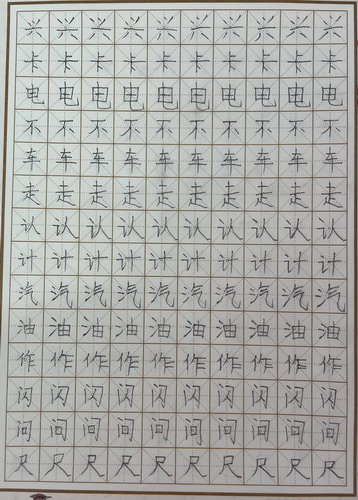 兴兴兴兴兴兴兴兴兴兴
卡卡卡卡卡卡卡卡卡卡
电电电电电电电电电电
不不不不不不不不不不
车车车车车车车车车车
走走走走走走走走走走
认认认认认认认认认认
计计计计计计计计计计
汽汽汽汽汽汽汽汽汽汽
油油油油油油油油油油
作作作作作作作作作作
闪闪闪闪闪闪闪闪闪闪
间间间间间间间间间间
尺尺尺尺尺尺尺尺尺尺